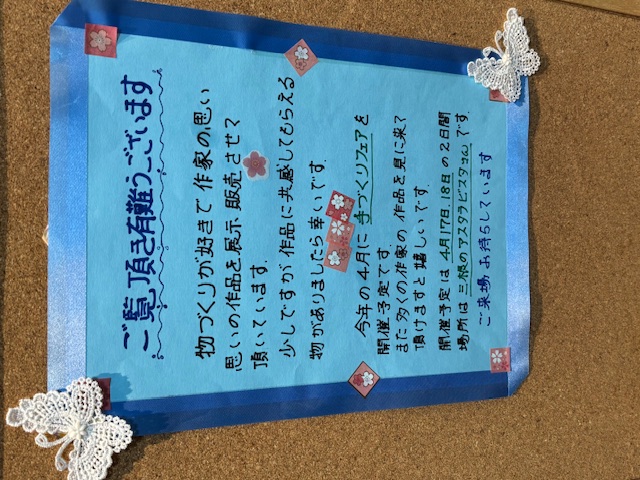 ご覧頂き有難うございます
物づくりが好きで作家の思い
思いの作品を展示 販売させて
頂いています.
少しですが作品に共感してもらえる
物がありましたら幸いです.
今年の4月に手づくりフェアを
開催予定です.
また多くの作家の作品を見に来て
頂けますと嬉しいです.
開催予定は4月17日.18日の2日間
場所は三根のアスタラビスタさんです.
ご来場お待ちしています